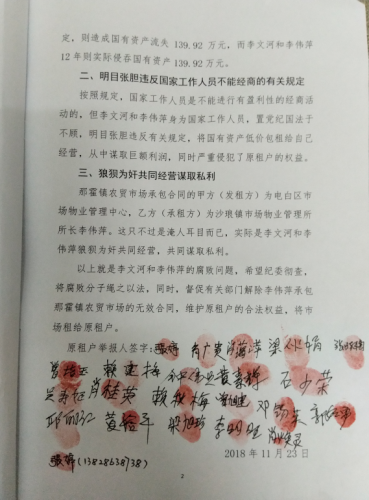 定，则造成国有资产流失 139.92 万元，而李文河和李伟萍
12 年则实际侵吞国有资产 139.92 万元。
二、明目张胆违反国家工作人员不能经商的有关规定
按照规定，国家工作人员是不能进行有盈利性的经商活
动的，但李文河和李伟萍身为国家工作人员，置党纪国法于
不顾，明目张胆违反有关规定，将国有资产低价包租给自己
经营，从中谋取巨额利润，同时严重侵犯了原租户的权益。
三、狼狈为奸共同经营谋取私利
那霍镇农贸市场承包合同的甲方（发租方）为电白区市
场物业管理中心，乙方（承租方）为沙琅镇市场物业管理所
所长李伟萍。这只不过是淹人耳目而已，实际是李文河和李
伟萍狼狈为奸共同经营，共同谋取私利。
以上就是李文河和李伟萍的腐败问题，希望纪委彻查，
将腐败分子绳之以法，同时，督促有关部门解除李伟萍承包
那霍镇农贸市场的无效合同，维护原租户的合法权益，将市
场租给原租户。
原租户举报人签字：
赖建梅 石少荣
肖桂荣 赖
黄 平 李明
2018 年 11 月 23 日
(13828638738)
2